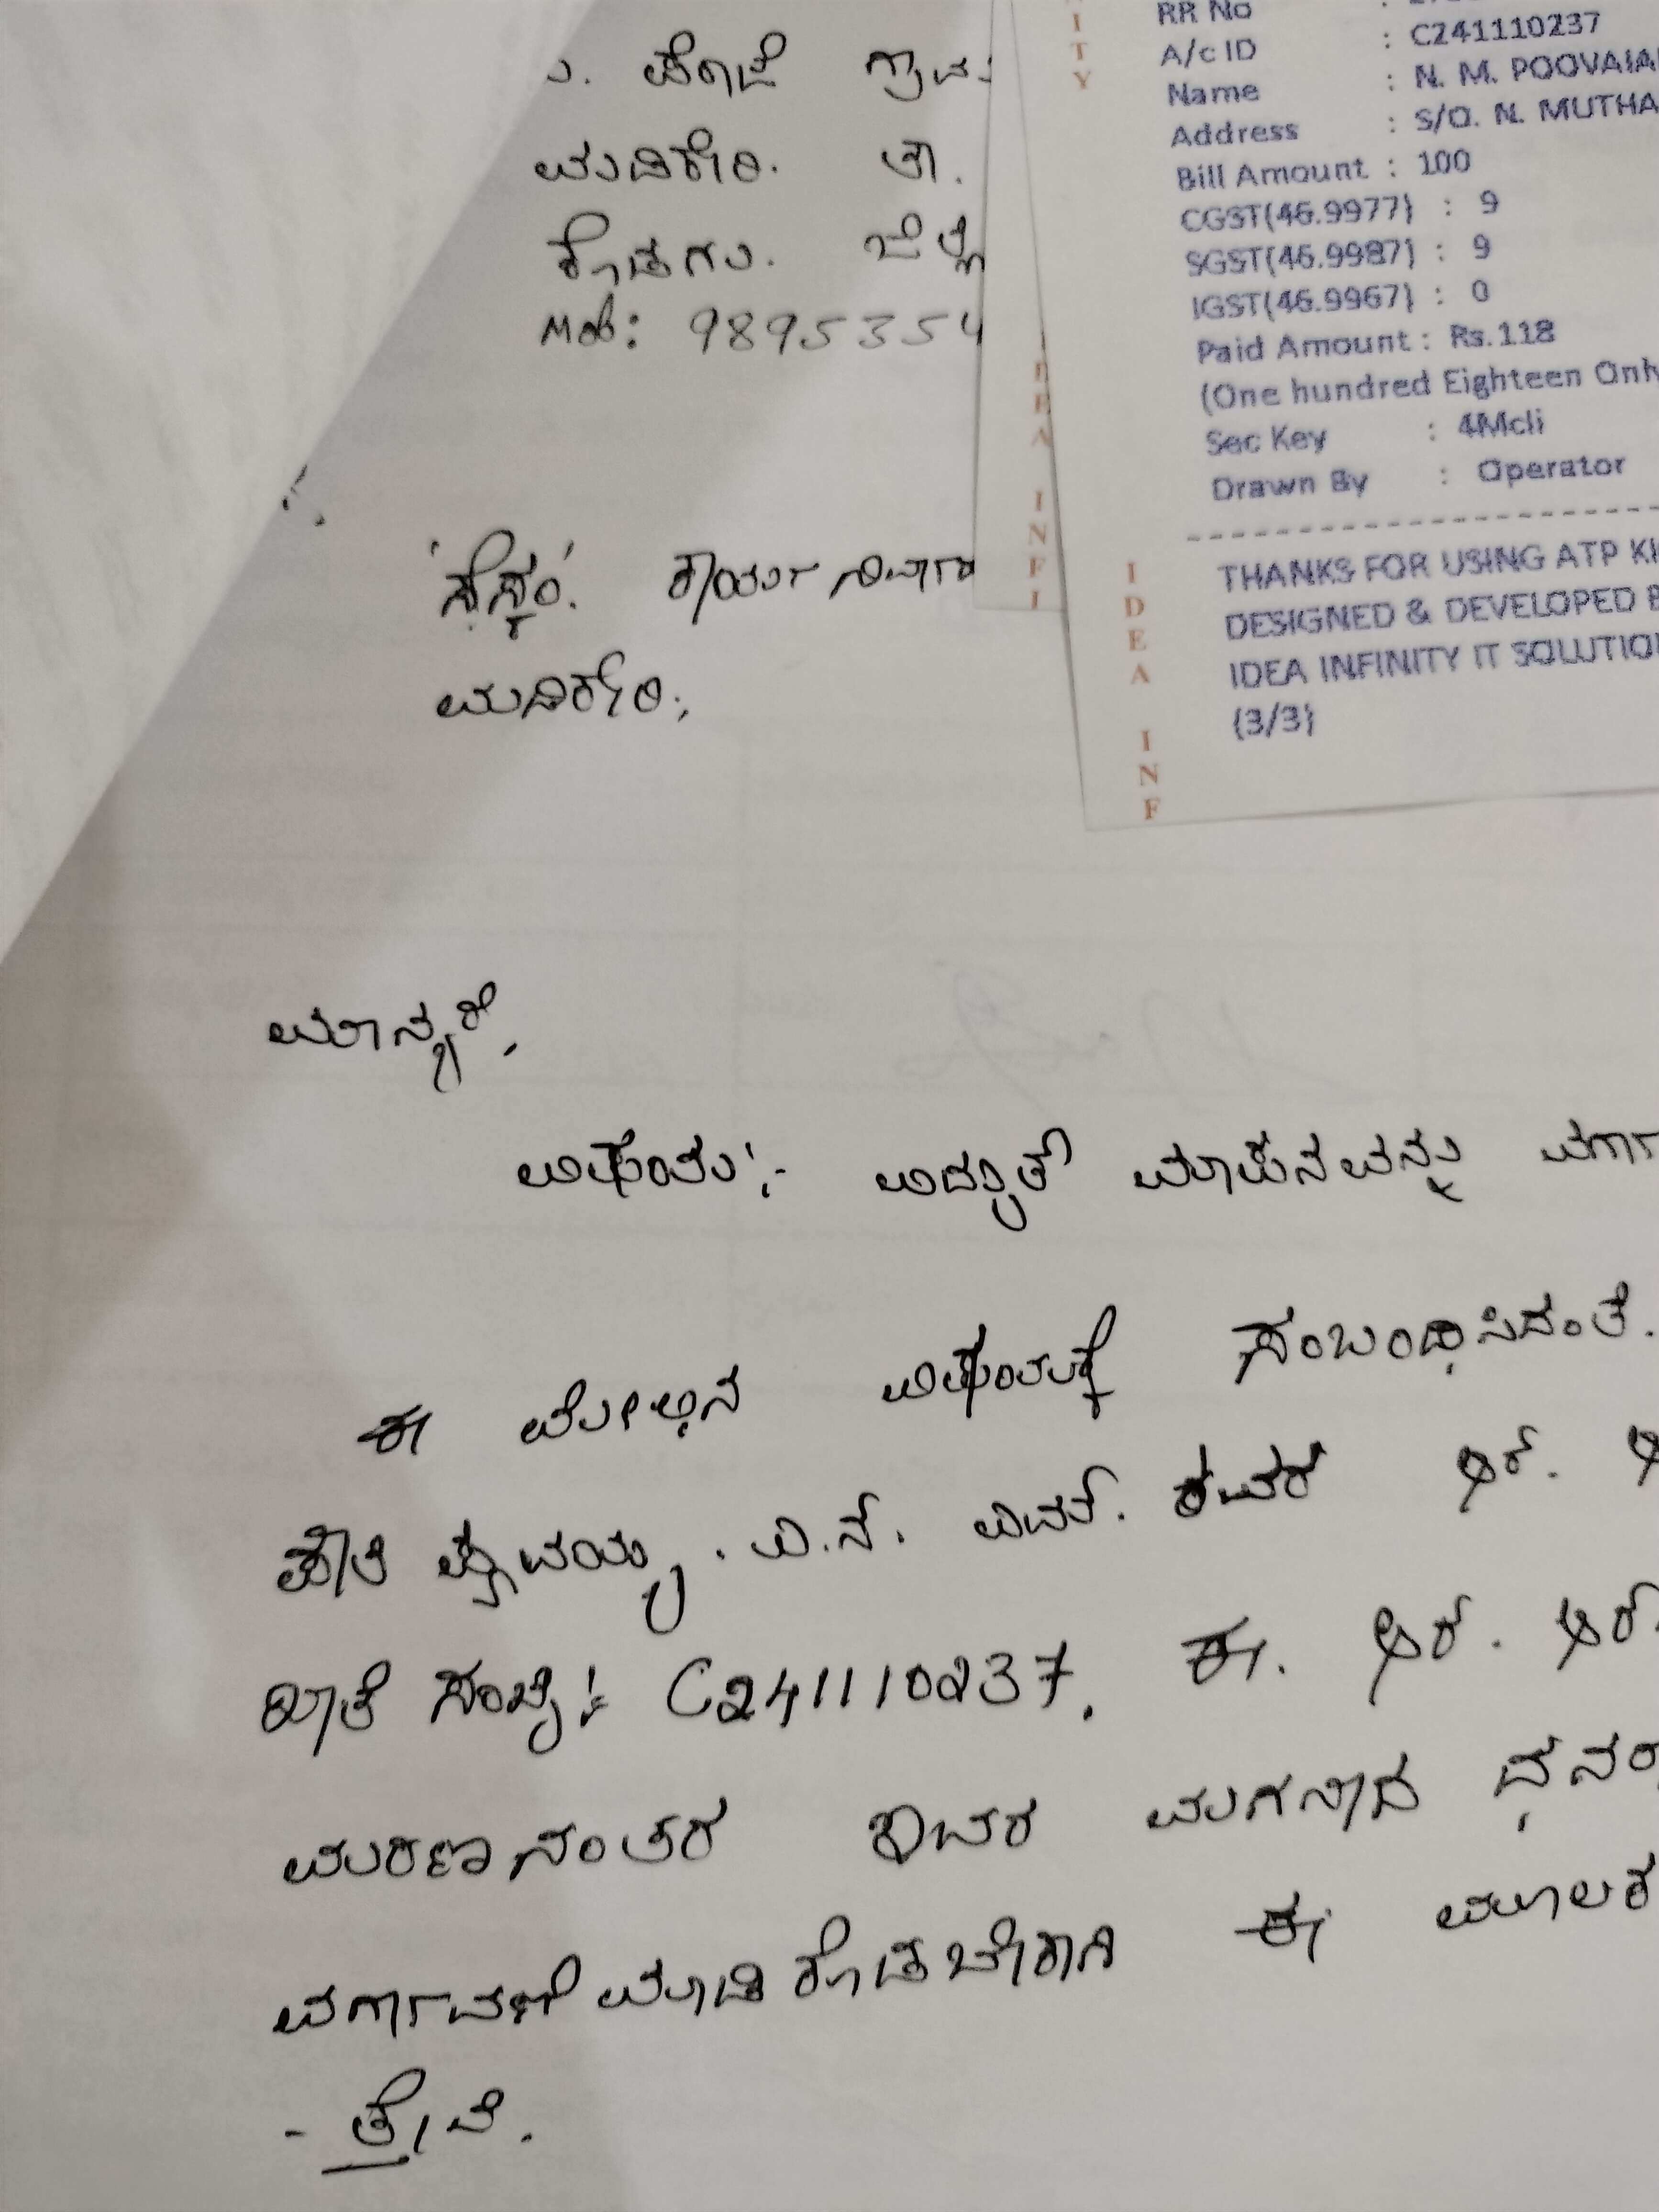 ಪೆರಾಜೆ ಗ್ರಾಮ
ಮಡಿಕೇರಿ. ತಾ.
ಕೊಡಗು. ಜಿಲ್ಲೆ
Mob: 9895354
ITY
RR No :
A/c ID : C241110237
Name : N. M. POOVAIA
Address : S/O. N. MUTHA
Bill Amount : 100
CGST(46.9977) : 9
SGST(46.9987) : 9
IGST(46.9967) : 0
Paid Amount : Rs.118
(One hundred Eighteen Only
Sec Key : 4Mcli
Drawn By : Operator
THANKS FOR USING ATP KI
DESIGNED & DEVELOPED B
IDEA INFINITY IT SOLUTION
(3/3)
DEA INFI
IDEA INF
'ಸೆಸ್ಕಂ'. ಕಾರ್ಯನಿರ್ವಾ
ಮಡಿಕೇರಿ.,
ಮಾನ್ಯರೆ,
ವಿಷಯ:- ವಿದ್ಯುತ್ ಮಾಪನವನ್ನು ವರ್ಗಾ
ಈ ಮೇಲಿನ ವಿಷಯಕ್ಕೆ ಸಂಬಂಧಿಸಿದಂತೆ.
ಪೂವಯ್ಯ . ಎನ್. ಎಮ್. ಆರ್.
ಖಾತೆ ಸಂಖ್ಯೆ: C241110237. ಈ. ಆರ್. ಆರ್.
ಮರಣಾನಂತರ ಇವರ ಮಗನಾದ
ವರ್ಗಾವಣೆ ಮಾಡಿ ಕೊಡಬೇಕಾಗಿ ಈ ಮೂಲಕ